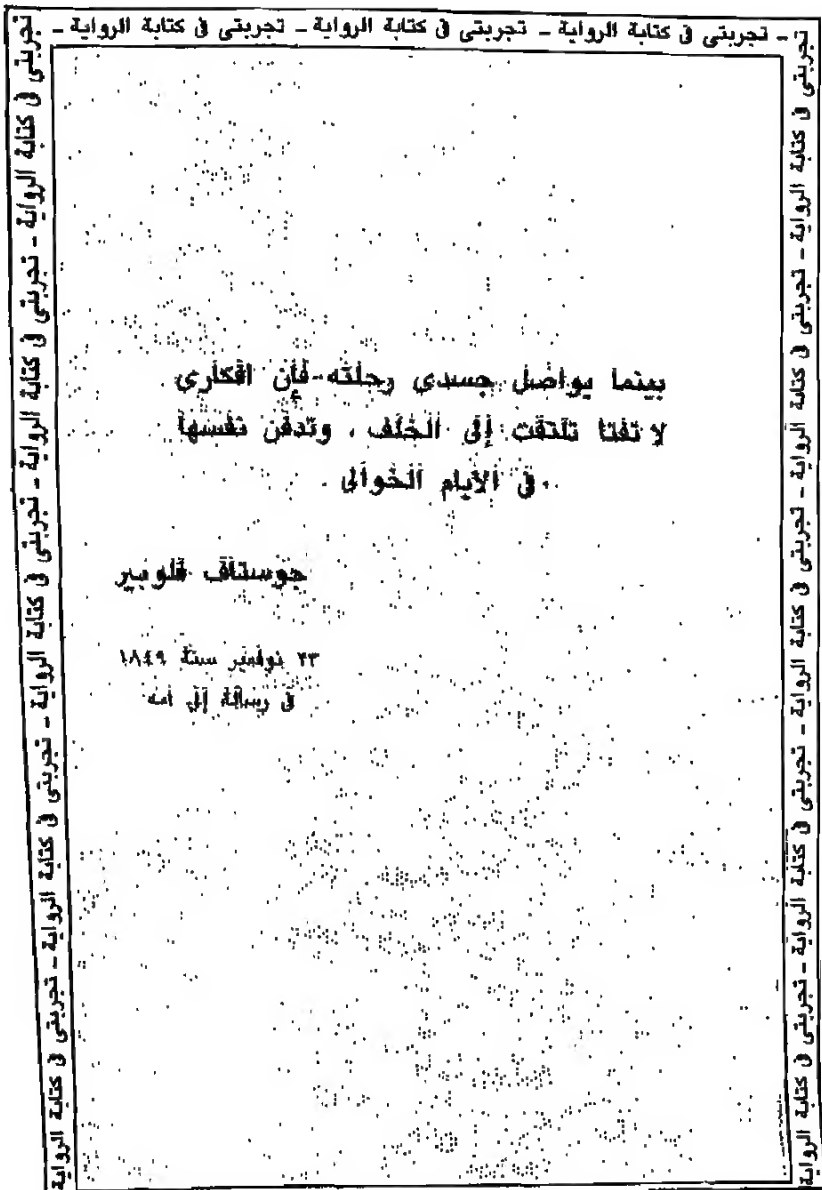 ـ تجربتى فى كتابة الرواية ـ تجربتى فى كتابة الرواية ـ تجربتى فى كتابة الرواية ـ
تجربتى فى كتابة الرواية ـ تجربتى فى كتابة الرواية ـ تجربتى فى كتابة الرواية ـ تجربتى فى كتابة الرواية ـ تجربتى فى كتابة الرواية
بينما يواصل جسدى رحلته فإن افكارى
لا تفتا تلتفت إلى الخلف ، وتدفن نفسها
فى الأيام الخوالى .
جوستاف فلوبير
٢٣ نوفمبر سنة ١٨٤٩
فى رسالة إلى امه
تجربتى فى كتابة الرواية ـ تجربتى فى كتابة الرواية ـ تجربتى فى كتابة الرواية ـ تجربتى فى كتابة الرواية ـ تجربتى فى كتابة الرواية